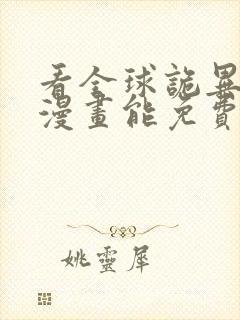 看全球詭異
漫畫能免費
姚靈犀